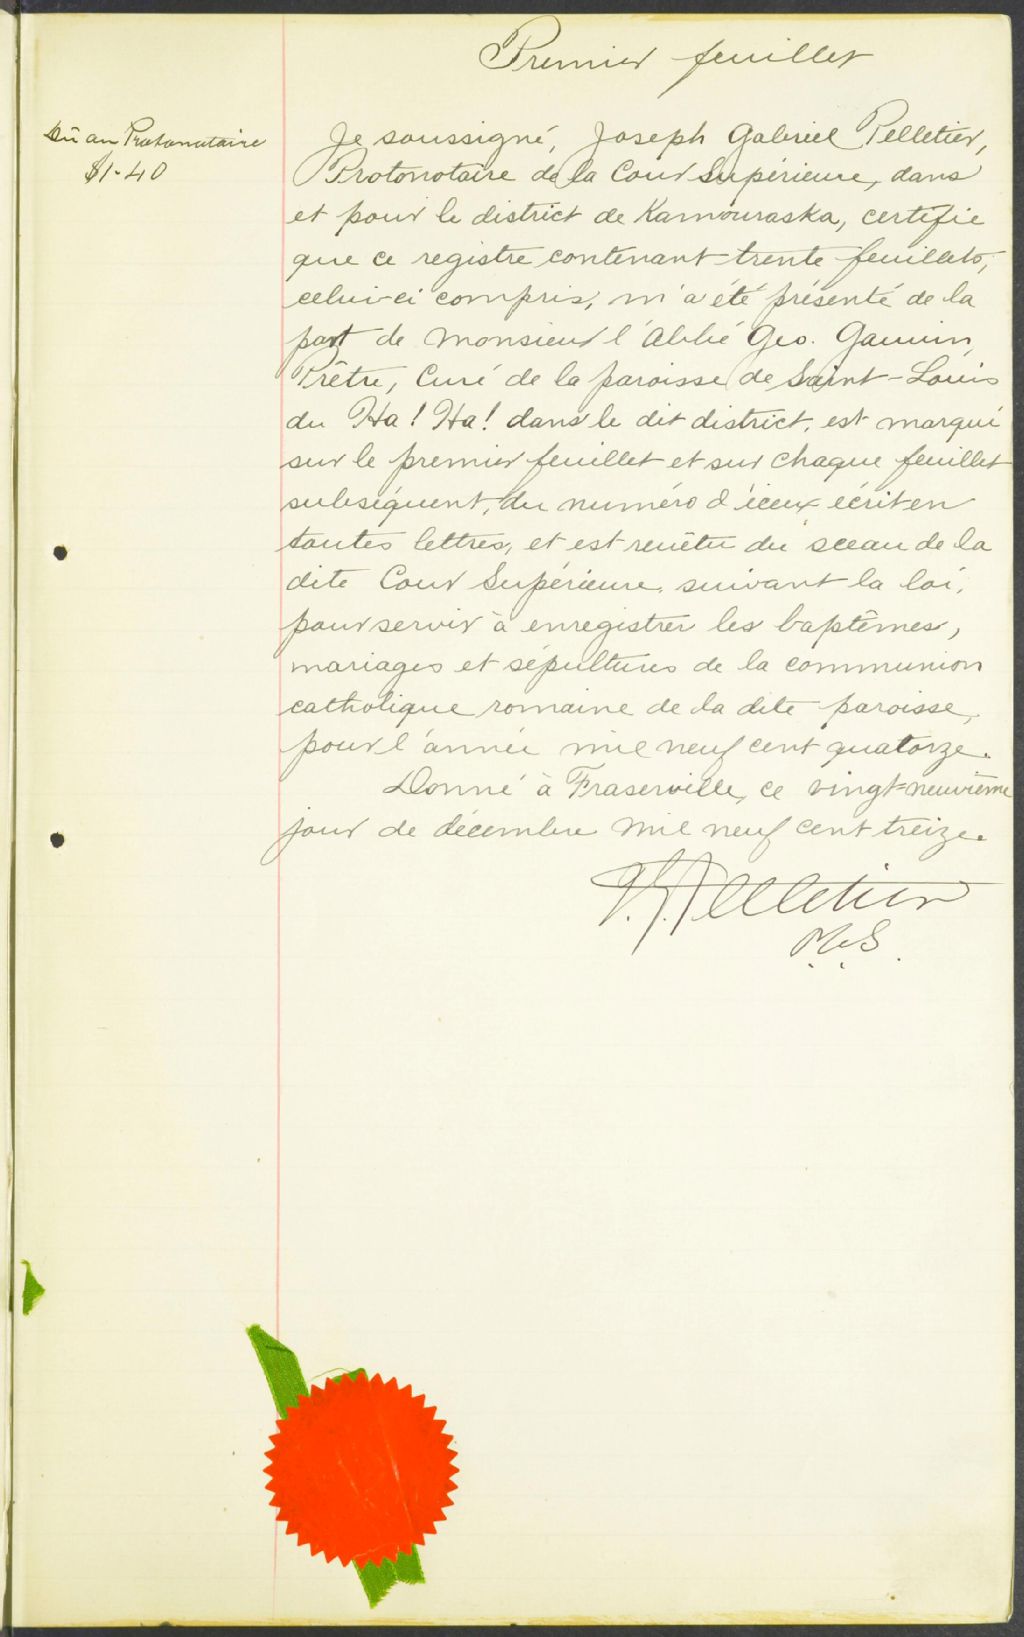 Premier feuillet
Dû au Protonotaire
$1-40
Je soussigné, Joseph Gabriel Pelletier,
Protonotaire de la Cour Supérieure, dans
et pour le district de Kamouraska, certifie
que ce registre contenant trente feuillets,
celui-ci compris, m'a été présenté de la
part de Monsieur l'Abbé Geo. Gauvin,
Prêtre, Curé de la paroisse de Saint-Louis
du Ha! Ha! dans le dit district, est marqué
sur le premier feuillet et sur chaque feuillet
subséquent, du numéro d'iceux écrit en
toutes lettres, et est revêtu du sceau de la
dite Cour Supérieure suivant la loi,
pour servir à enregistrer les baptêmes,
mariages et sépultures de la communion
catholique romaine de la dite paroisse,
pour l'année mil neuf cent quatorze.
Donné à Fraserville, ce vingt-neuvième
jour de décembre mil neuf cent treize.
J. G. Pelletier
P.C.S.